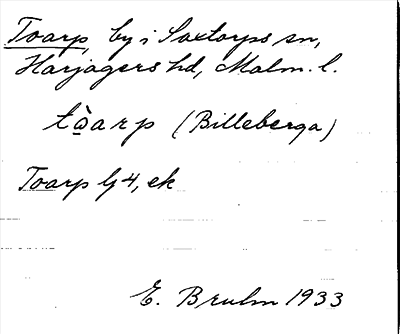 Toarp, by i Saxtorps sn,
Harjagers hd, Malm. l.
tòarp (Billeberga)
Toarp lg 4, ek
E. Bruhn 1933